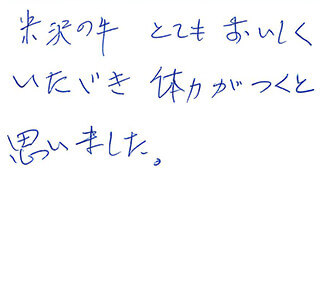 米沢の牛 とても おいしく
いただき 体力がつくと
思いました。